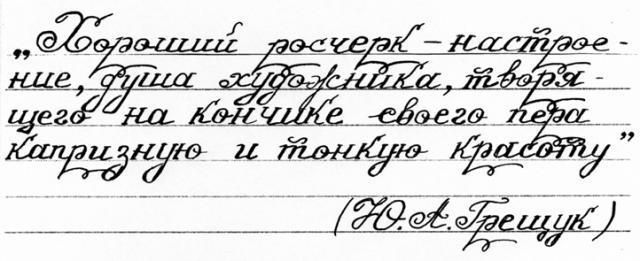 „Хороший росчерк – настрое-
ние, душа художника, творя-
щего на кончике своего пера
капризную и тонкую красоту”
(Ю. А. Грещук)